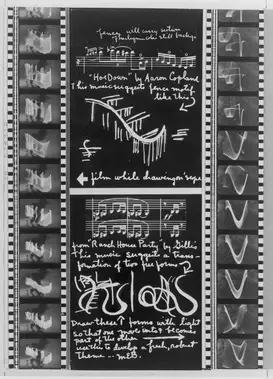 fences will carry action
"Hoe Down" by Aaron Copland
This music suggests fence motif
like this
film while drawing on rope
from Ranch House Party by Gillis
This music suggests a trans-
formation of two free forms
Draw these forms with light
so that one moves into & becomes
part of the other
with to develop a fresh, robust
theme -- MEB.